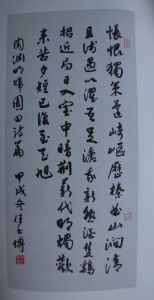 悵恨獨策還崎嶇歷榛曲山澗清
且淺遇以濯吾足漉我新熟酒雙鷄
招近局日入室中暗荊薪代明燭歡
來苦夕短已復至天旭
陶淵明歸園田詩篇 甲戌冬